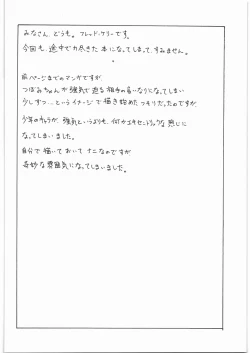 みなさん、どうも。フレッド・ケリーです。
今回も、途中で力尽きた本になってしまって、すみません。
前ページまでのマンガですが、
つぼみちゃんが強気で迫る相手の言いなりになってしまい
少しずつ…というイメージで描き始めたつもりだったのですが、
少年のキャラが、強気というよりも、何かエキセントリックな感じに
なってしまいました。
自分で描いておいてナニなのですが
奇妙な雰囲気になってしまいました。